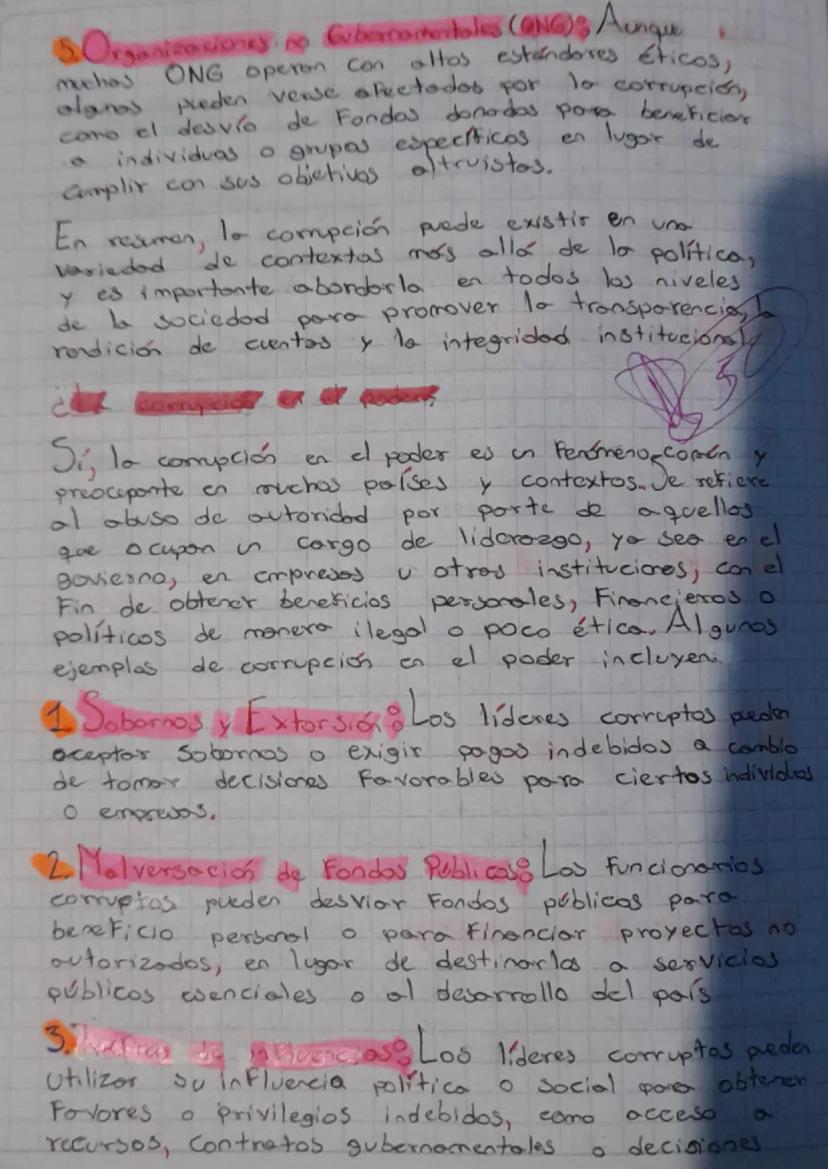 5. Organizaciones no Gubernamentales (ONG): Aunque
muchas ONG operan con altos estándares éticos,
algunas pueden verse afectadas por la corrupción,
como el desvío de Fondos donados para beneficiar
a individuos o grupos específicos en lugar de
cumplir con sus objetivos altruistas.
En resumen, la corrupción puede existir en una
variedad de contextos más allá de la política,
y es importante abordarla en todos los niveles
de la sociedad para promover la transparencia, la
rendición de cuentas y la integridad institucional
5
¿La corrupción en el poder?
Sí, la corrupción en el poder es un Fenómeno común y
preocupante en muchos países y contextos. Se refiere
al abuso de autoridad por parte de aquellos
que ocupan un cargo de liderazgo, ya sea en el
govierno, en empresas u otras instituciones, con el
Fin de obtener beneficios personales, Financieros o
políticos de manera ilegal o poco ética. Algunos
ejemplos de corrupción en el poder incluyen:
1. Sobornos y Extorsión: Los líderes corruptos pueden
aceptar sobornos o exigir pagos indebidos a cambio
de tomar decisiones Favorables para ciertos individuos
o empresas.
2. Malversación de Fondos Públicos: Los Funcionarios
corruptos pueden desviar Fondos públicos para
beneficio personal o para Financiar proyectos no
autorizados, en lugar de destinarlos a servicios
públicos esenciales o al desarrollo del país
3. de influencias: Los líderes corruptos pueden
Utilizar su influencia política o social para obtener
Favores o privilegios indebidos, como acceso a
recursos, contratos gubernamentales o decisiones